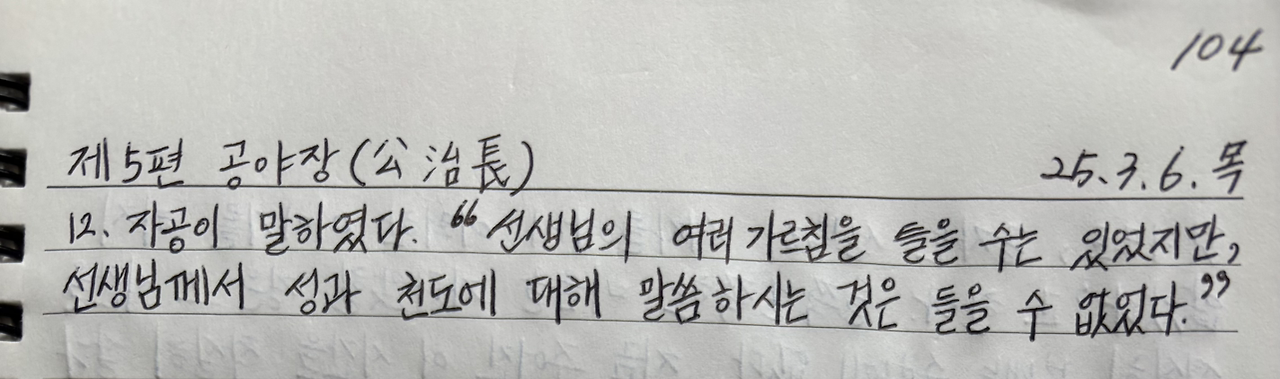 104
제5편 공야장(公治長) 25.3.6.목
12. 자공이 말하였다. “선생님의 여러 가르침을 들을 수는 있었지만,
선생님께서 성과 천도에 대해 말씀하시는 것은 들을 수 없었다.”